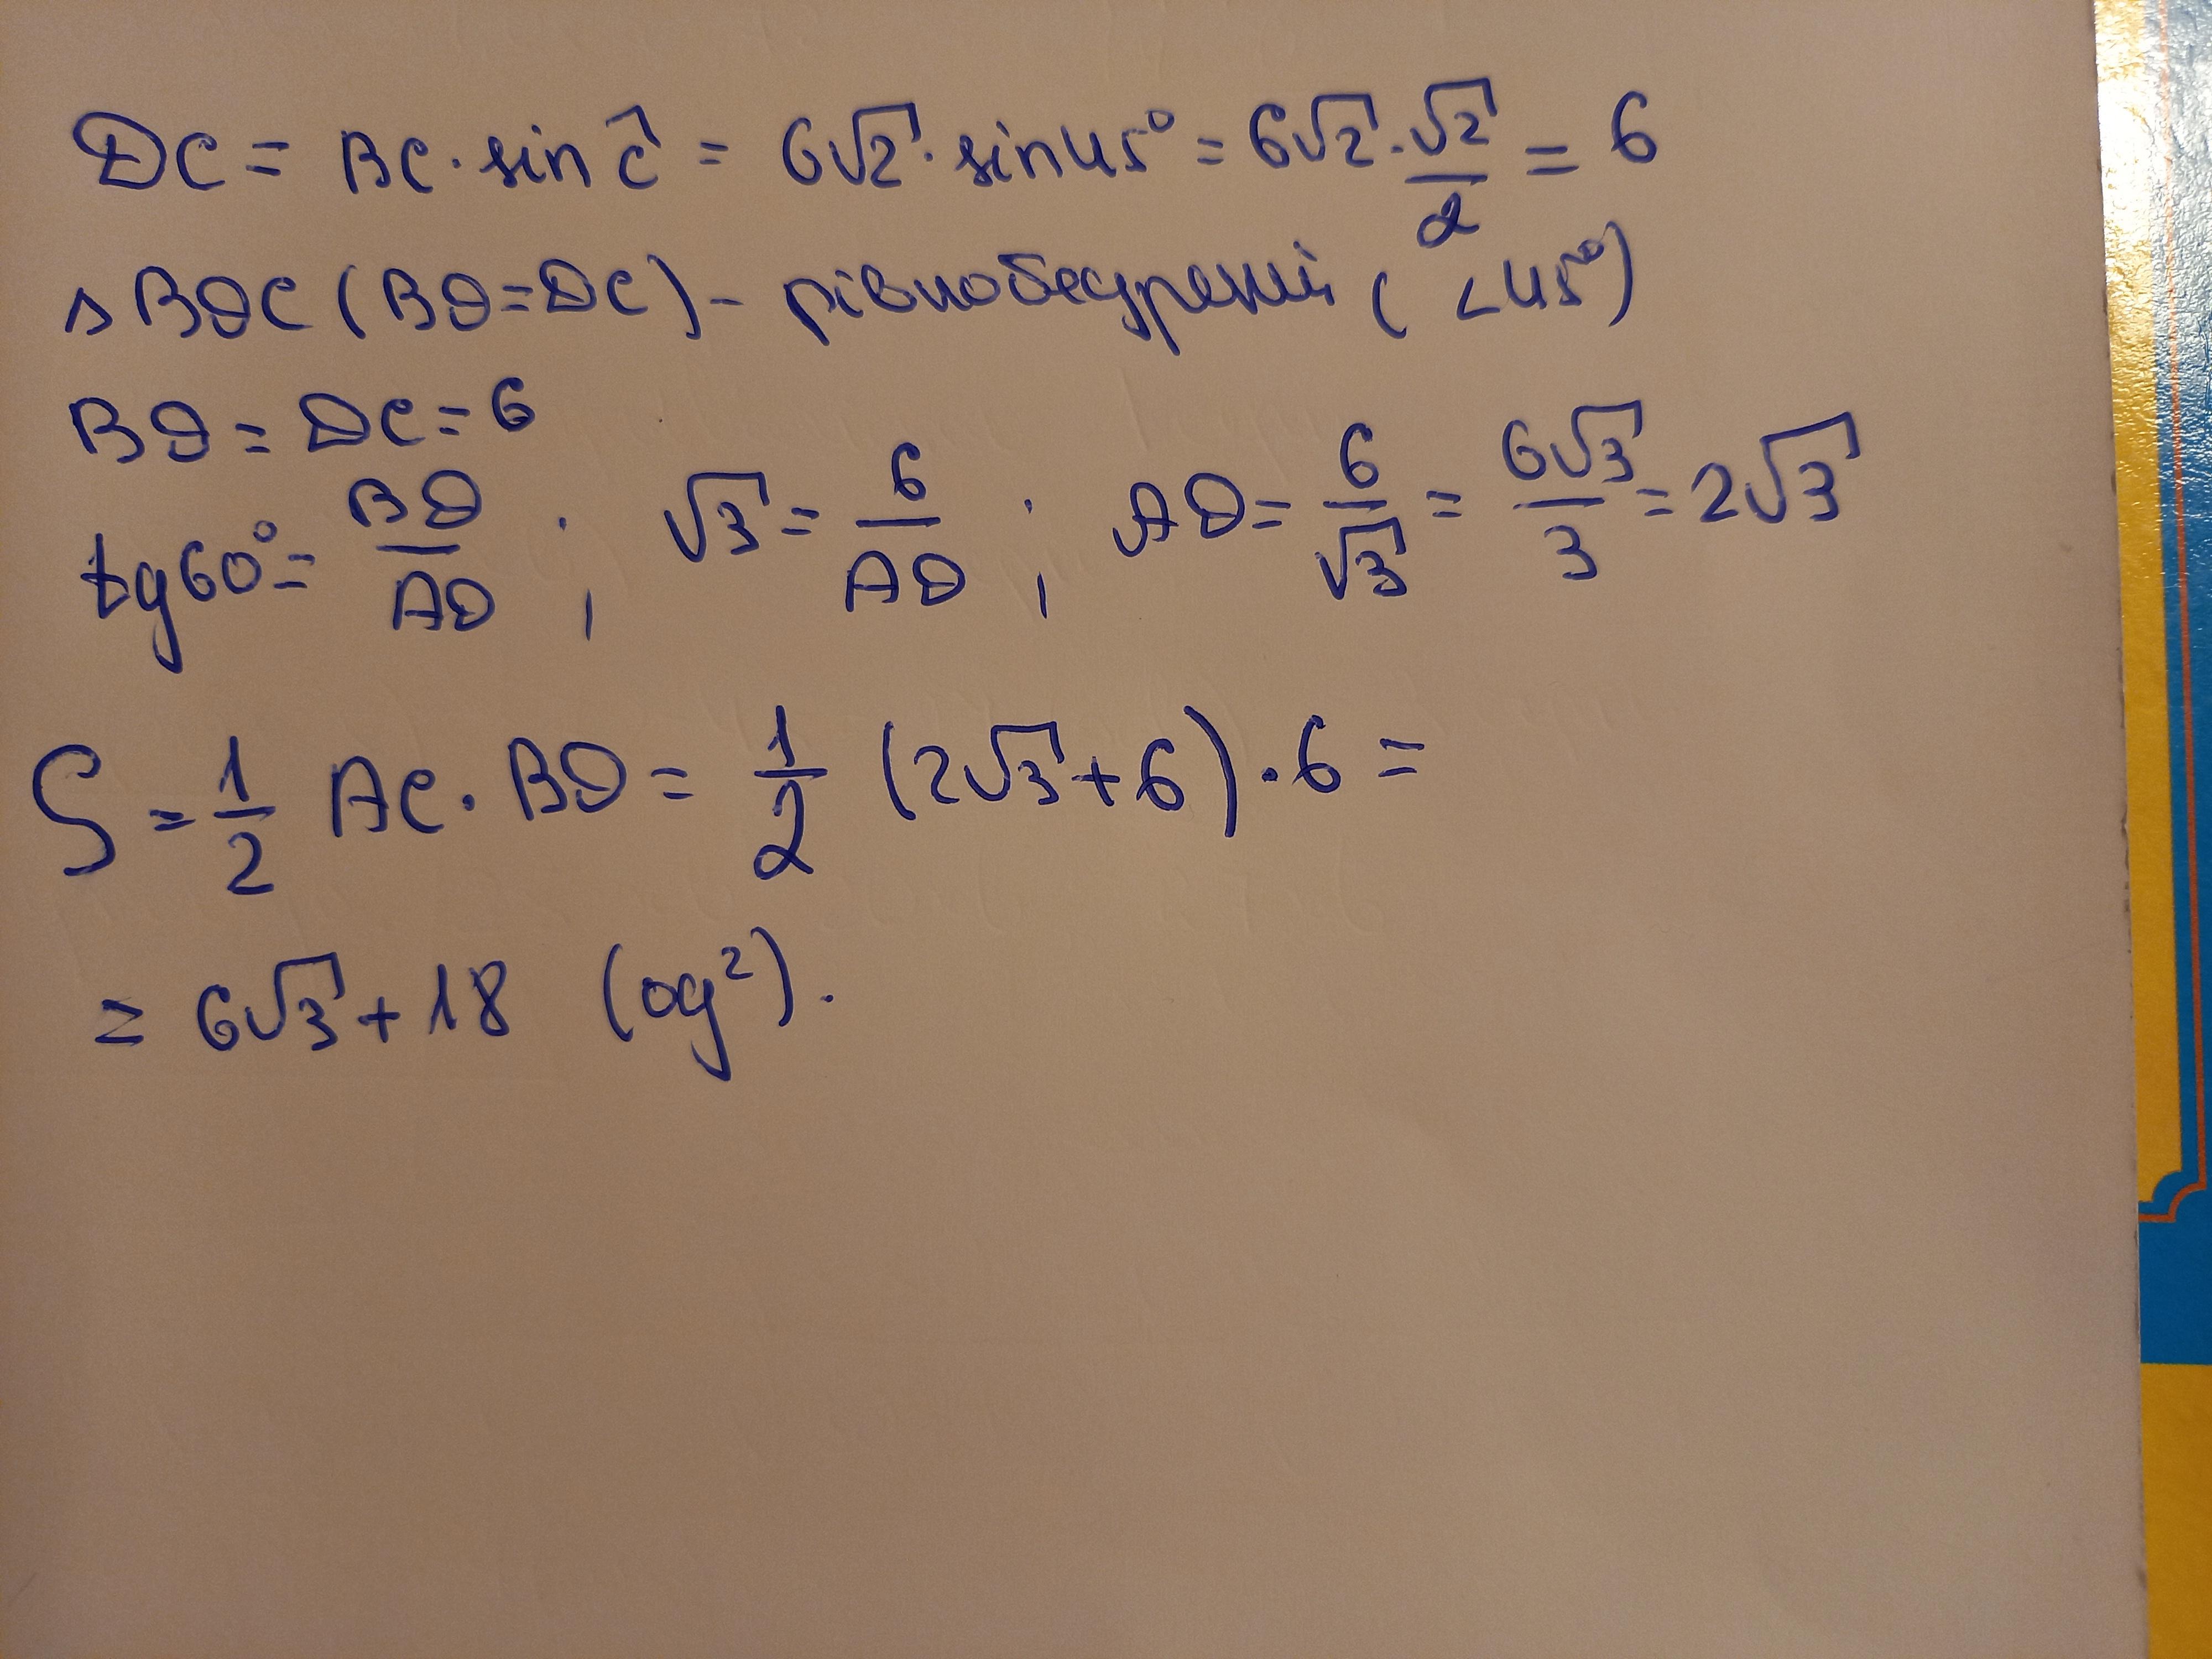 DC = BC · sin Ĉ = 6√2 · sin 45° = 6√2 · √2/2 = 6
△ BDC (BD = DC) - рівнобедрений ( ∠45°)
BD = DC = 6
tg 60° = BD/AD ; √3 = 6/AD ; AD = 6/√3 = 6√3/3 = 2√3
S = 1/2 AC · BD = 1/2 (2√3 + 6) · 6 =
= 6√3 + 18 (од²).